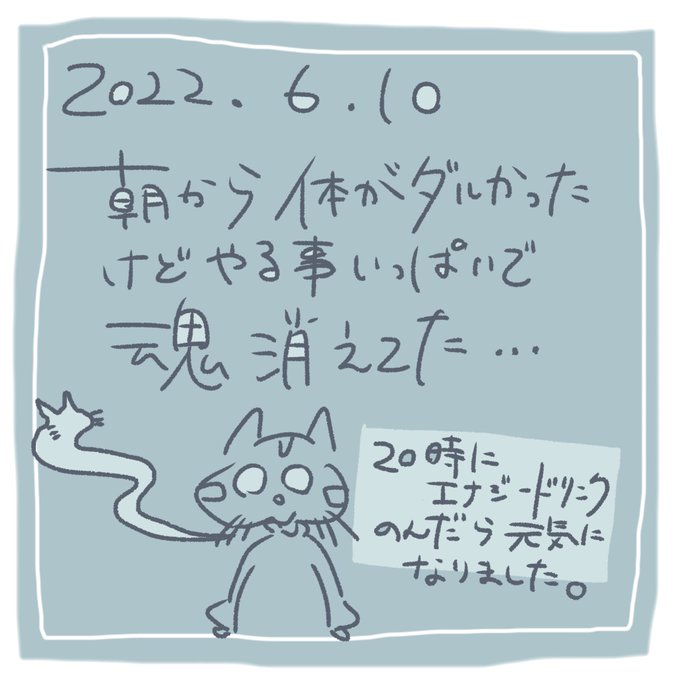 2022.6.10
朝から体がダルかった
けどやる事いっぱいで
魂消えてた…
20時に
エナジードリンク
のんだら元気に
なりました。